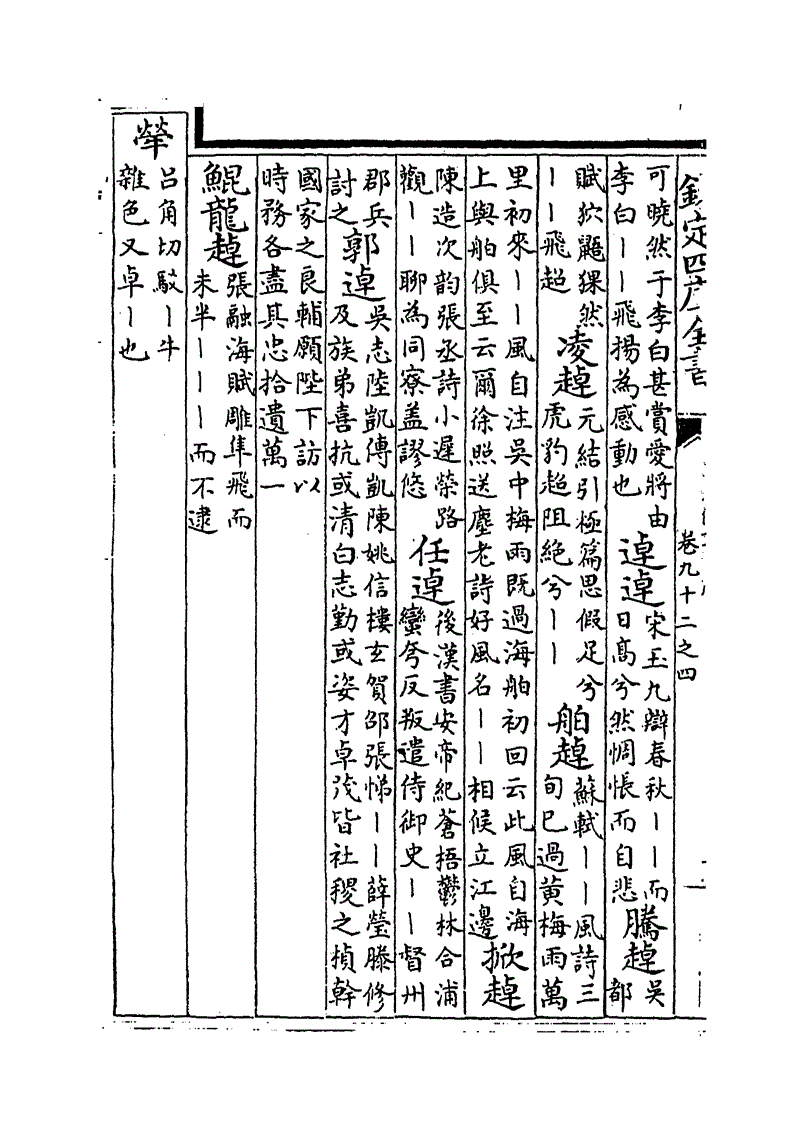 欽定四庫全書
卷九十二之四
可曉然于李白甚賞愛將由
李白丨丨飛揚為感動也
逴逴
宋玉九辯春秋丨丨而
日髙兮然惆悵而自悲
騰趠
吳
都
賦狖鼯猓然
丨丨飛超
凌趠
元結引極篇思假足兮
虎豹超阻絶兮丨丨
舶趠
蘇軾丨丨風詩三
旬已過黄梅雨萬
里初來丨丨風自注吳中梅雨既過海舶初回云此風自海
上與舶俱至云爾徐照送塵老詩好風名丨丨相候立江邊
掀趠
陳造次韵張丞詩小遲榮路
觀丨丨聊為同寮盖謬悠
任逴
後漢書安帝紀蒼梧鬱林合浦
蠻夸反叛遣侍御史丨丨督州
郡兵
討之
郭逴
吳志陸凱傳凱陳姚信樓玄賀邵張悌丨丨薛瑩滕修
及族弟喜抗或清白志勤或姿才卓茂皆社稷之楨幹
國家之良輔願陛下訪以
時務各盡其忠拾遺萬一
鯤龍趠
張融海賦雕隼飛而
未半丨丨丨而不逮
犖
吕角切駁丨牛
雜色又卓丨也